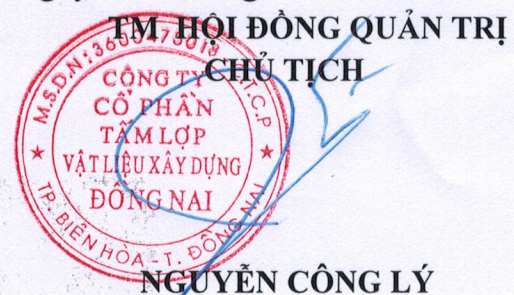 TM HỘI ĐỒNG QUẢN TRỊ
CHỦ TỊCH
M.S.D.N:
C.T.C.P
CÔNG TY
CỔ PHẦN
TẤM LỢP
VẬT LIỆU XÂY DỰNG
ĐỒNG NAI
TP. BIÊN HÒA - T. ĐỒNG NAI
NGUYỄN CÔNG LÝ